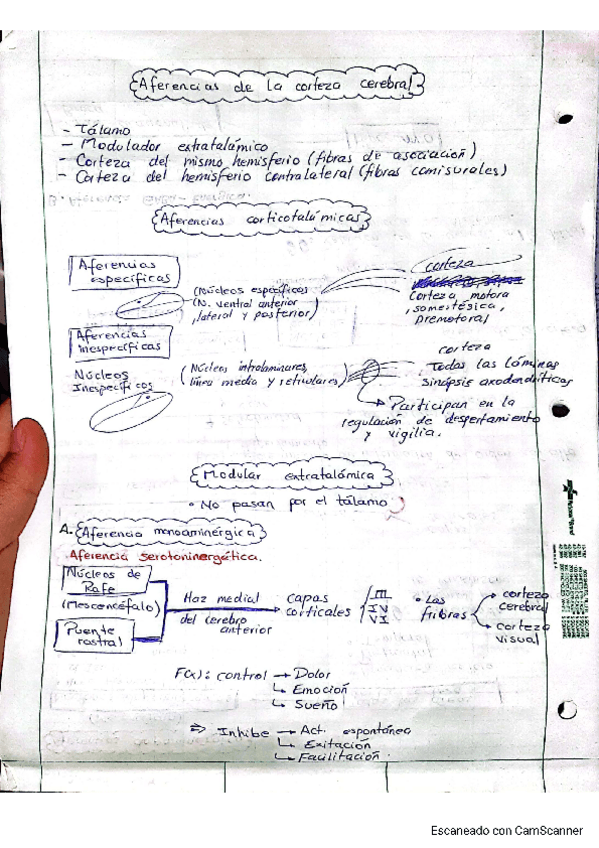 Aferencias de la corteza cerebral
- Tálamo
- Modulador extratalámico
- Corteza del mismo hemisferio (fibras de asociación)
- Corteza del hemisferio contralateral (fibras comisurales)
Aferencias corticotalámicas
Aferencias específicas
(Núcleos específicos
(N. ventral anterior
, lateral y posterior)
corteza
Corteza motora
, somestésica,
premotora)
Aferencias
inespecíficas
Núcleos
Inespecíficos
(Núcleos intralaminares,
línea media y reticulares)
corteza
Todas las láminas
sinapsis axodendríticas
Participan en la
regulación de despertamiento
y vigilia.
Modular extratalámica
• No pasan por el tálamo
A. Aferencia monoaminérgica
Aferencia serotoninergética.
Núcleos de
Rafe
(Mescencéfalo)
Puente
rostral
Haz medial
del cerebro
anterior
→ capas
corticales
III
IV
VI
• Las
fribras
→ corteza
cerebral
→ corteza
visual
F(x): control → Dolor
↳ Emoción
↳ Sueño
⇒ Inhibe → Act. espontánea
↳ Exitación
↳ Facilitación
Escaneado con CamScanner